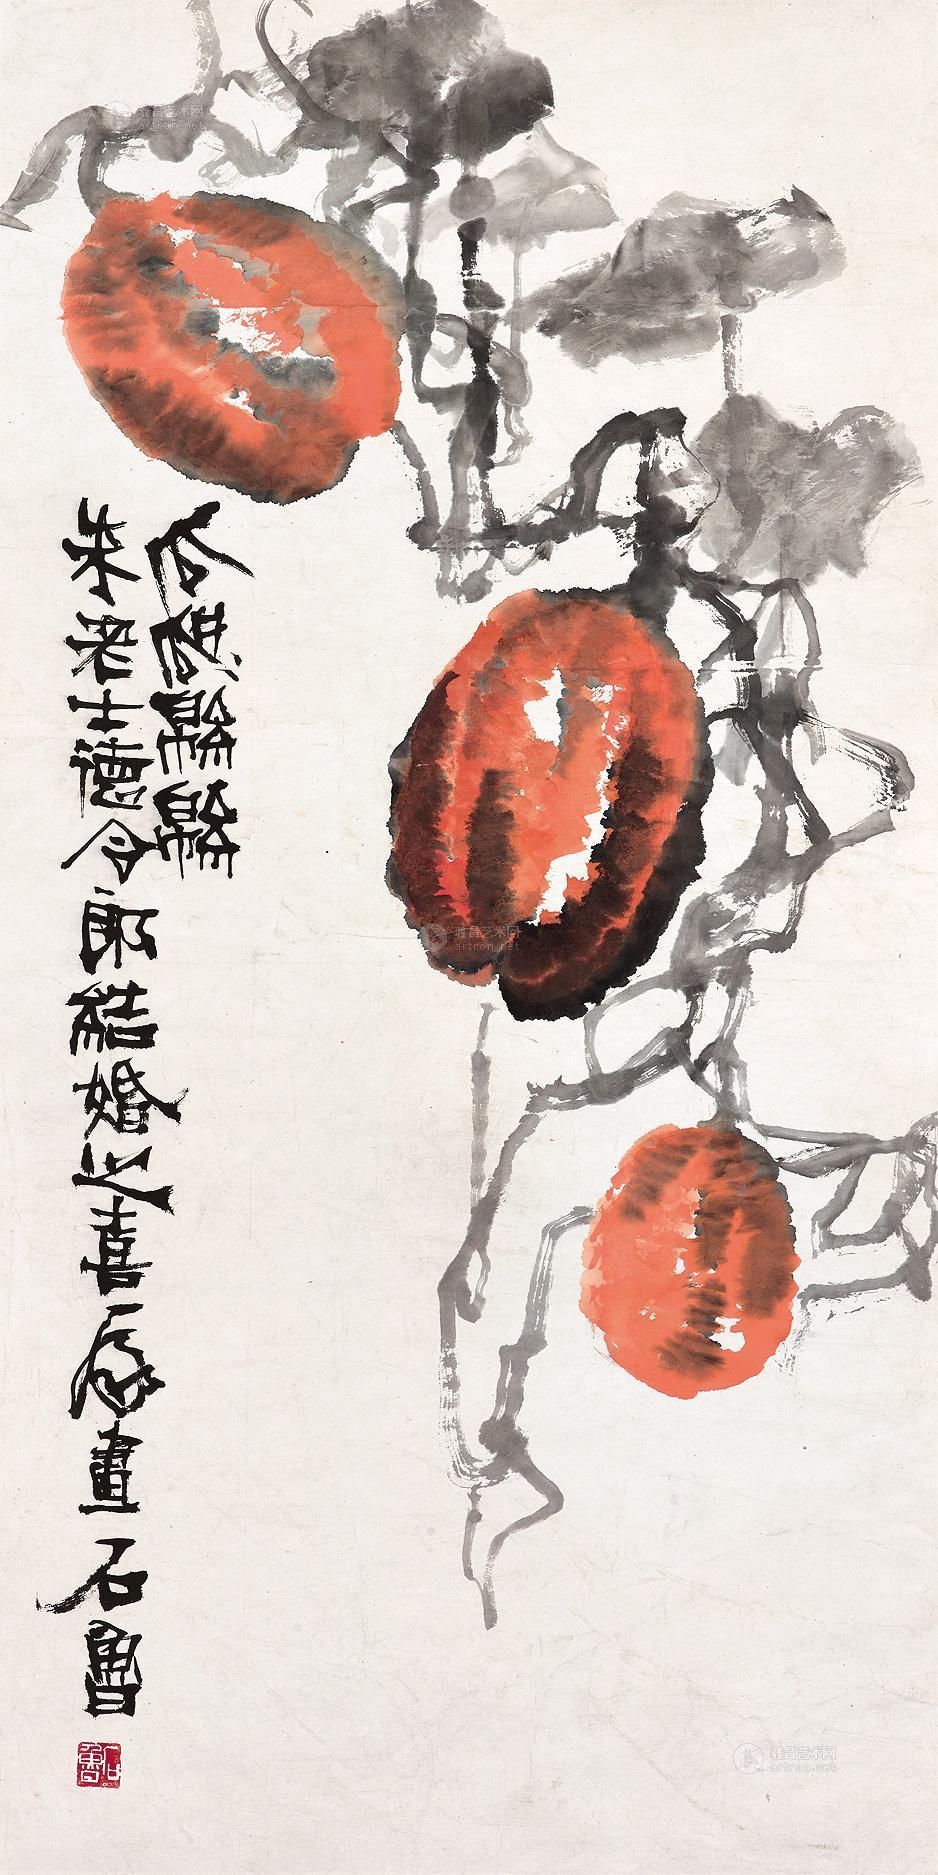 瓜緜緜
朱老士德令郎結婚之喜辰畫石魯
石魯
雅昌艺术网
artron.net
雅昌艺术网
artron.net
雅昌艺术网
artron.net